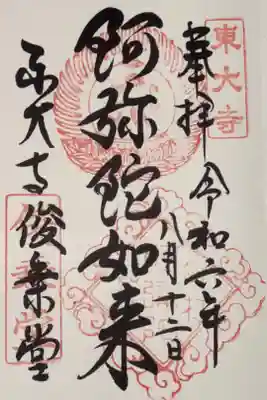 東大寺
奉拝 令和六年
八月十二日
阿弥陀如来
東大寺 俊乗堂